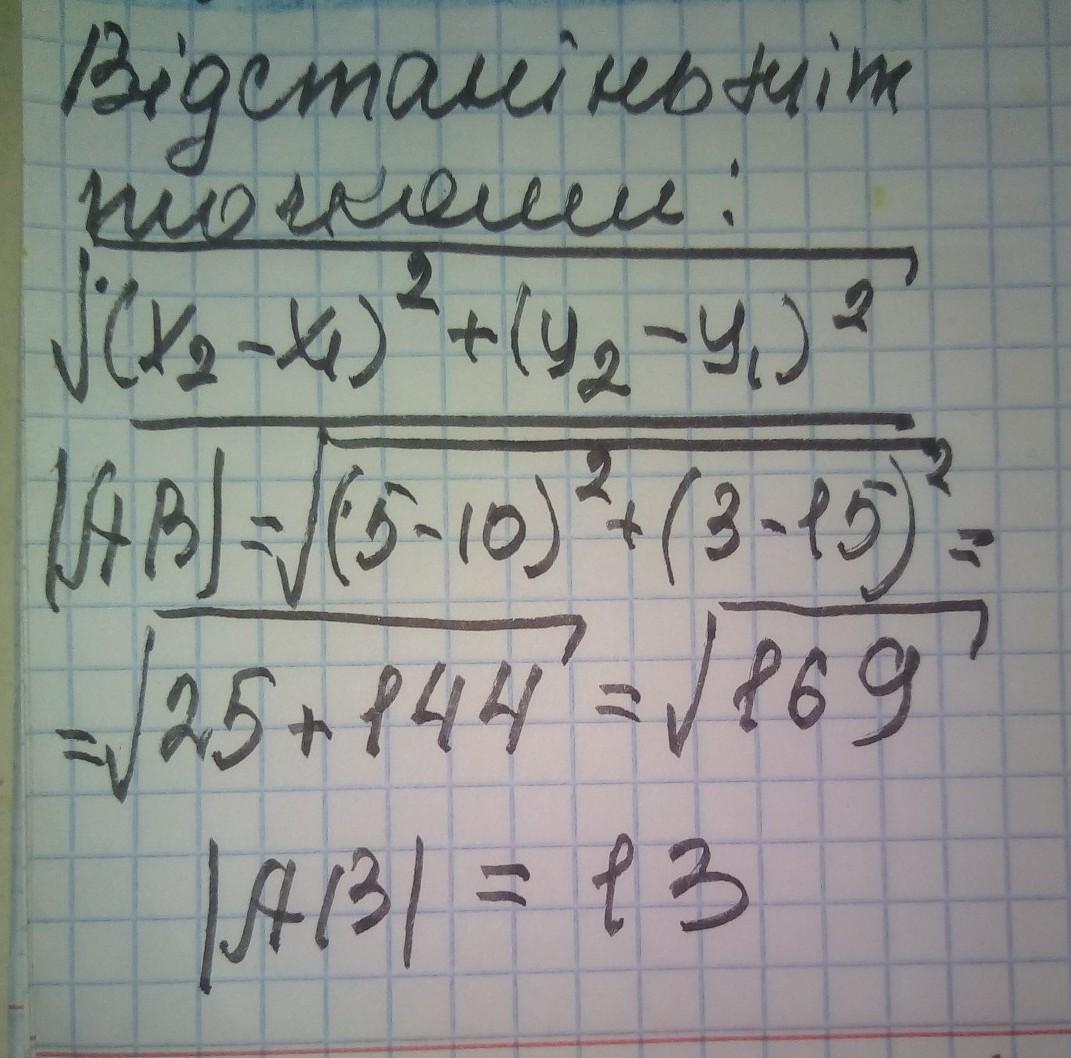 Відстань між
точками:
√(x₂-x₁)² + (y₂-y₁)²
|AB| = √(5-10)² + (3-15)² =
= √25+144 = √169
|AB| = 13